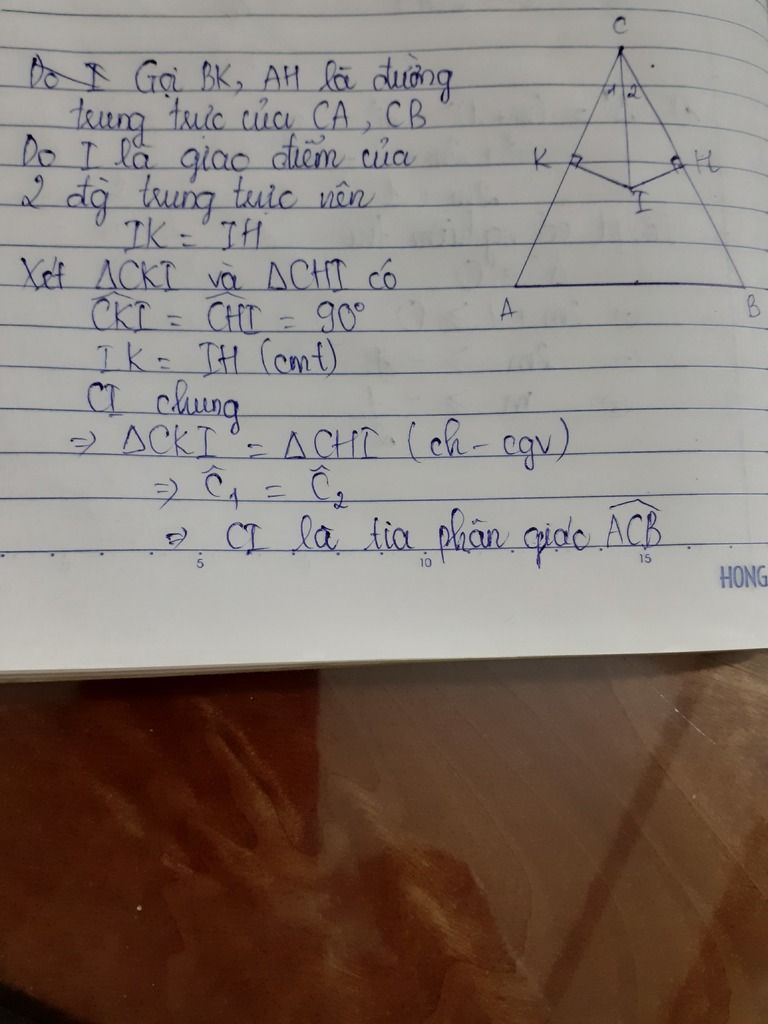 Do I Gọi BK, AH là đường
trung trực của CA, CB
Do I là giao điểm của
2 đg̀ trung trực nên
IK = IH
Xét ΔCKI và ΔCHI có
\widehat{CKI} = \widehat{CHI} = 90°
IK = IH (cmt)
CI chung
⇒ ΔCKI = ΔCHI (ch - cgv)
⇒ Ĉ₁ = Ĉ₂
⇒ CI là tia phân giác \widehat{ACB}
C
1 2
K H
I
A B
5 10 15
HONG